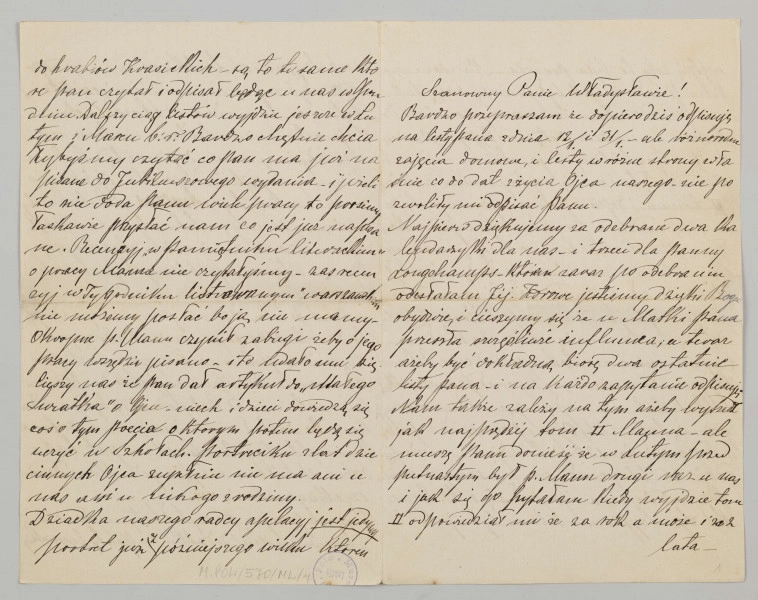 do hrabiów Krasickich – są to te same któ
re pan czytał i odpisał będąc u nas w
dniu. Dalszy ciąg listów wyjdzie jeszcze w Lu
tym i Marcu b.r. Bardzo chętnie chcia
łybyśmy czytać co pan ma już na
pisane do Jubileuszowego wydania – i jeżeli
to nie doda Panu wiele pracy to prosimy
łaskawie przysłać nam co jest już napisa
ne. Recenzyj w Pamiętniku literackim
o pracy Manna nie czytałyśmy – zaś recen
zyj w Tygodniku ilustrowanym warszawskim
nie możemy posłać bo jej nie mamy –
Okropne p. Mann czynił zabiegi żeby o jego
pracy wszędzie pisano – i to udało mu się
cieszy nas że pan dał artykuł do "Małego
Światka" o Ojcu – niech i dzieci dowiedzą się
coś o tym poecie o którym potem będą się
uczyć w szkołach. Portreciku z lat dzie
cinnych Ojca zupełnie nie ma ani u
nas ani u nikogo z rodziny.
Dziadka naszego radcy apelacyj jest jedyny
portret już z późniejszego wieku którem
M.POW/570/ML/
Szanowny Panie Władysławie!
Bardzo przepraszam że dopiero dziś odpisuję
na listy pana z dnia 12/1 i 31/1 – ale różnorodne
zajęcia domowe, i listy w różne strony wła
śnie co do dat z życia Ojca naszego – nie po
zwoliły mi odpisać Panu.
Najpierw dziękujemy za odebrane dwa ka
lendarzyki dla nas – i trzeci dla panny
Longchamps – który zaraz po odebraniu
odesłałam Jej. Zdrowe jesteśmy dzięki Bogu
obydwie, i cieszymy się że u Matki pana
przeszła szczęśliwie influenca, a teraz
ażeby być dokładną, biorę dwa ostatnie
listy pana – i na każde zapytanie odpisuję
Nam także zależy na tym ażeby wyszedł
jak najprędzej tom II Manna – ale
muszę Panu donieść że w Lutym przed
piętnastym był p. Mann drugi raz u nas
i jak się go pytałam kiedy wyjdzie tom
II odpowiedział mi że za rok a może i za 2
lata –